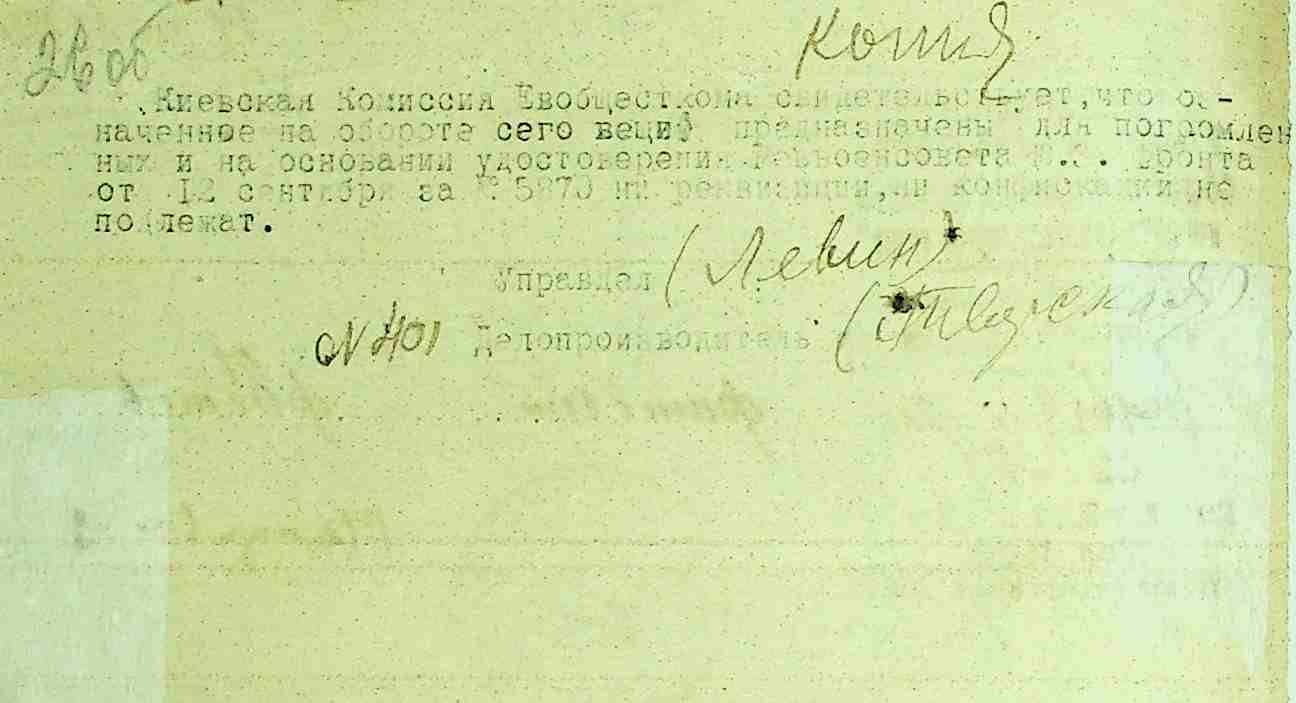 26 об
Копия
Киевская Комиссия Евобщесткома свидетельствует,что оз-
наченное на обороте сего вещи предназначены для погромлен
ных и на основании удостоверения Реввоенсовета Ю.З. фронта
от 12 сентября за № 5870 ни реквизиции,ни конфискации не
подлежат.
Управдел (Левин)
№ 401 Делопроизводитель (Тверская)